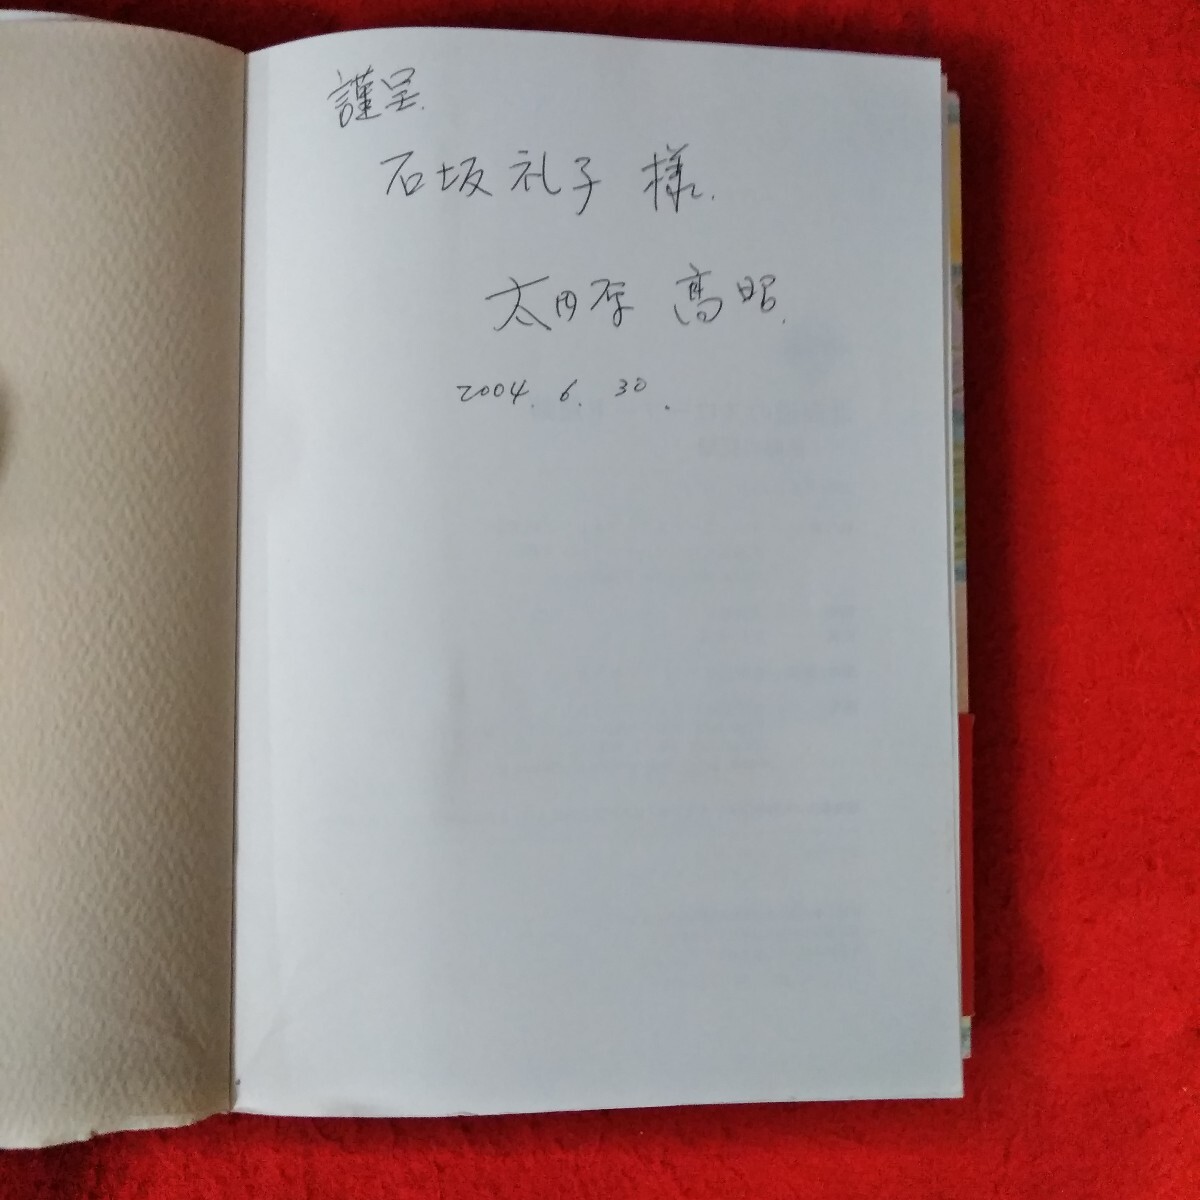 謹呈.
石坂礼子 様.
太田原 高昭.
2004. 6. 30.